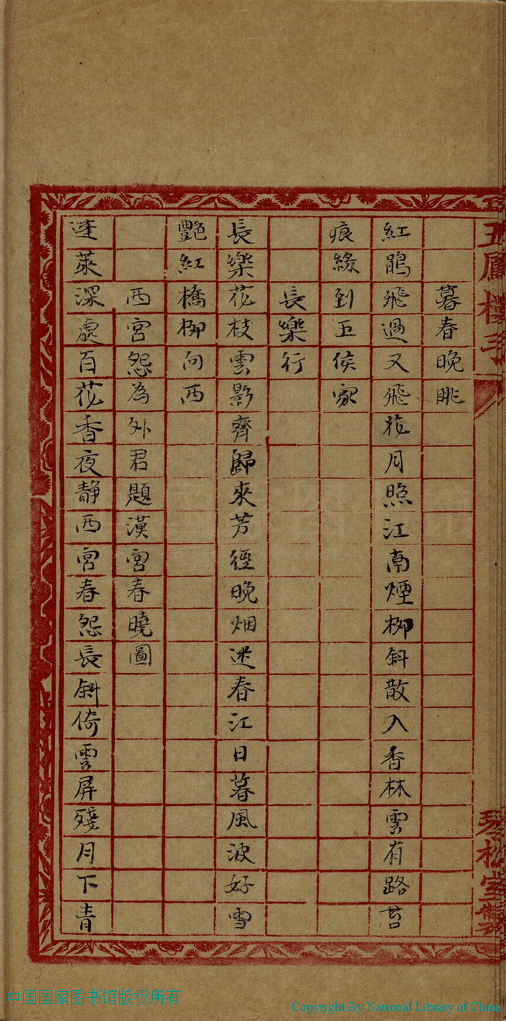 暮春晚眺
紅鵑飛過又飛花月照江南煙柳斜散入香林雲有路苔
痕緣到五侯家
長樂行
長樂花枝雲影齊歸來芳徑晚烟迷春江日暮風波好雪
艷紅橋柳向西
西宮怨為外君題漢宮春曉圖
蓬萊深處百花香夜靜西宮春怨長斜倚雲屏殘月下青
五鳳樓
中国国家图书馆版权所有
Copyright By National Library of China